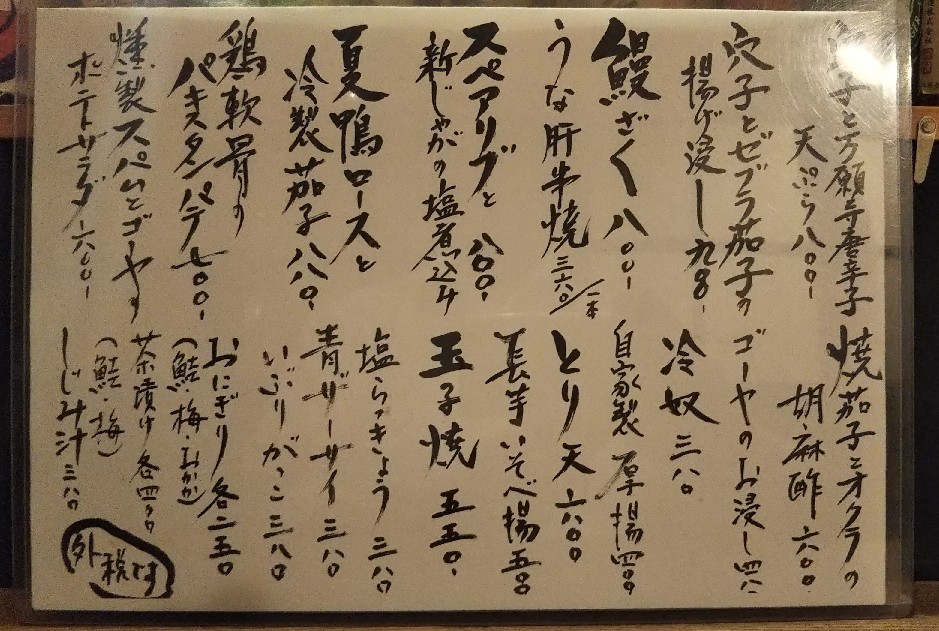 子と万願寺唐辛子
天ぷら八〇〇-
穴子とゼブラ茄子の
揚げ浸し九〇〇-
鰻ざく八〇〇-
うな肝串焼三六〇/一本
スペアリブと
新じゃがの塩煮込み 八〇〇-
夏鴨ロースと
冷製茄子八八〇-
鶏軟骨の
パキタンパテ七〇〇-
燻製スパムとゴーヤの
ポテトサラダ六〇〇-
焼茄子とオクラの
胡麻酢六〇〇
ゴーヤのお浸し四八〇
冷奴三八〇
自家製厚揚四〇〇
とり天六八〇〇
長芋いそべ揚五〇〇
玉子焼 五五〇-
塩らっきょう 三八〇
青ザーサイ三八〇
いぶりがっこ三八〇
おにぎり各二五〇
(鮭・梅・おかか)
茶漬け各四五〇
(鮭・梅)
しじみ汁三八〇
外税です